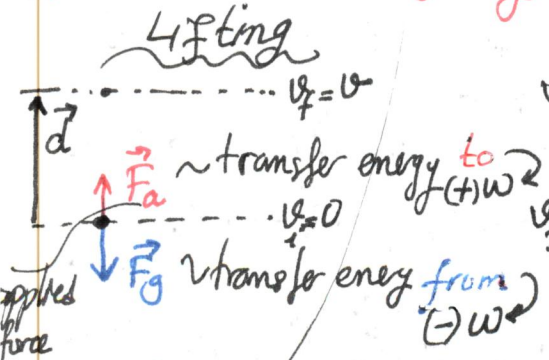 Lifting
v_f = v
d
F_a
~ transfer energy to
(+)W
v_i = 0
F_g
~ transfer enery from
(-)W
applied
force